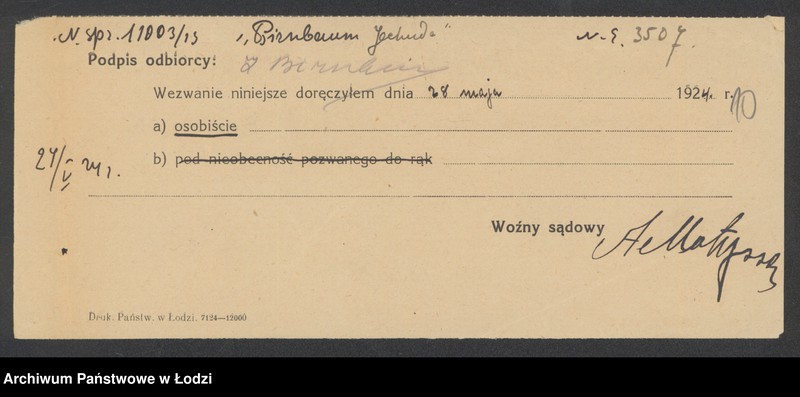 N. spr. 11003/23 „Birnbaum Jehuda" N. E. 3507.
Podpis odbiorcy: J Birnbaum
Wezwanie niniejsze doręczyłem dnia 28 maja 1924 r. 10
a) osobiście
24/V 24 r. b) pod nieobecność pozwanego do rąk
Woźny sądowy
Druk. Państw. w Łodzi. 7124—12000
Archiwum Państwowe w Łodzi